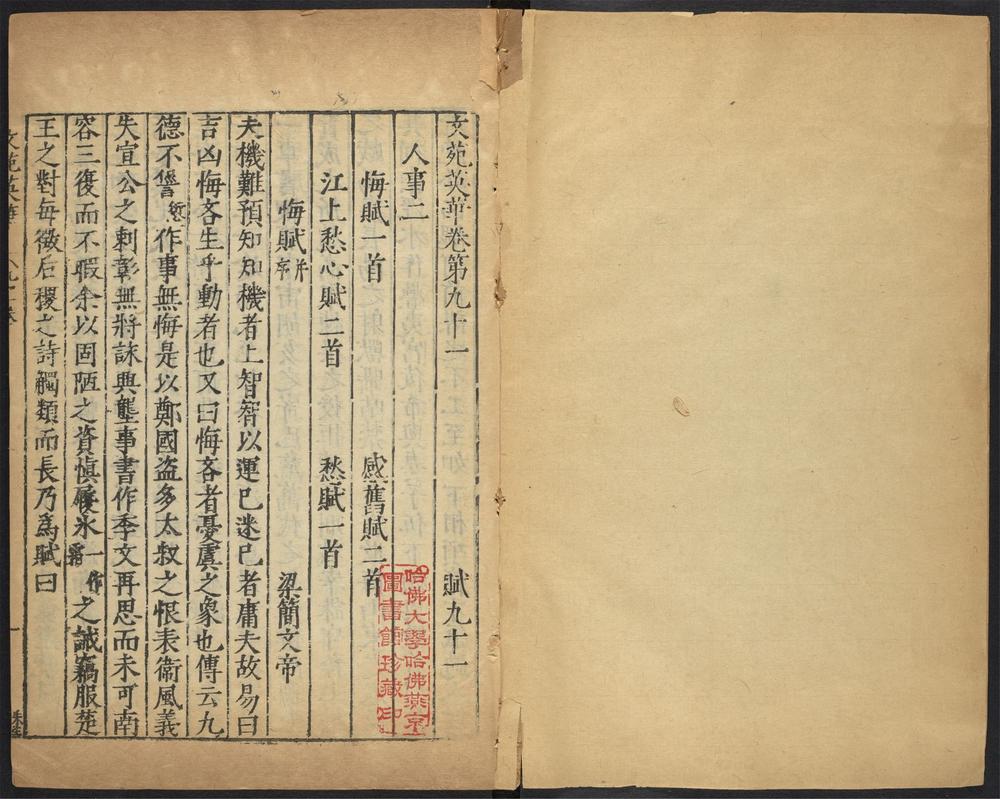 文苑英華卷第九十一 賦九十一
人事二
悔賦一首 感舊賦二首
江上愁心賦二首 愁賦一首
悔賦并序 梁簡文帝
夫機難預知知機者上智智以運已迷已者庸夫故易曰
吉凶悔吝生乎動者也又曰悔吝者憂虞之象也傳云九
德不諐愆作事無悔是以鄭國盗多太叔之恨表衞風義
失宣公之刺彰無將誅典壟事書作季文再思而未可南
容三復而不暇余以固陋之資慎履氷一作之誡竊服楚
王之對每徵后稷之詩觸類而長乃為賦曰
文苑英華 一
哈佛大學哈佛燕京
圖書館珍藏印